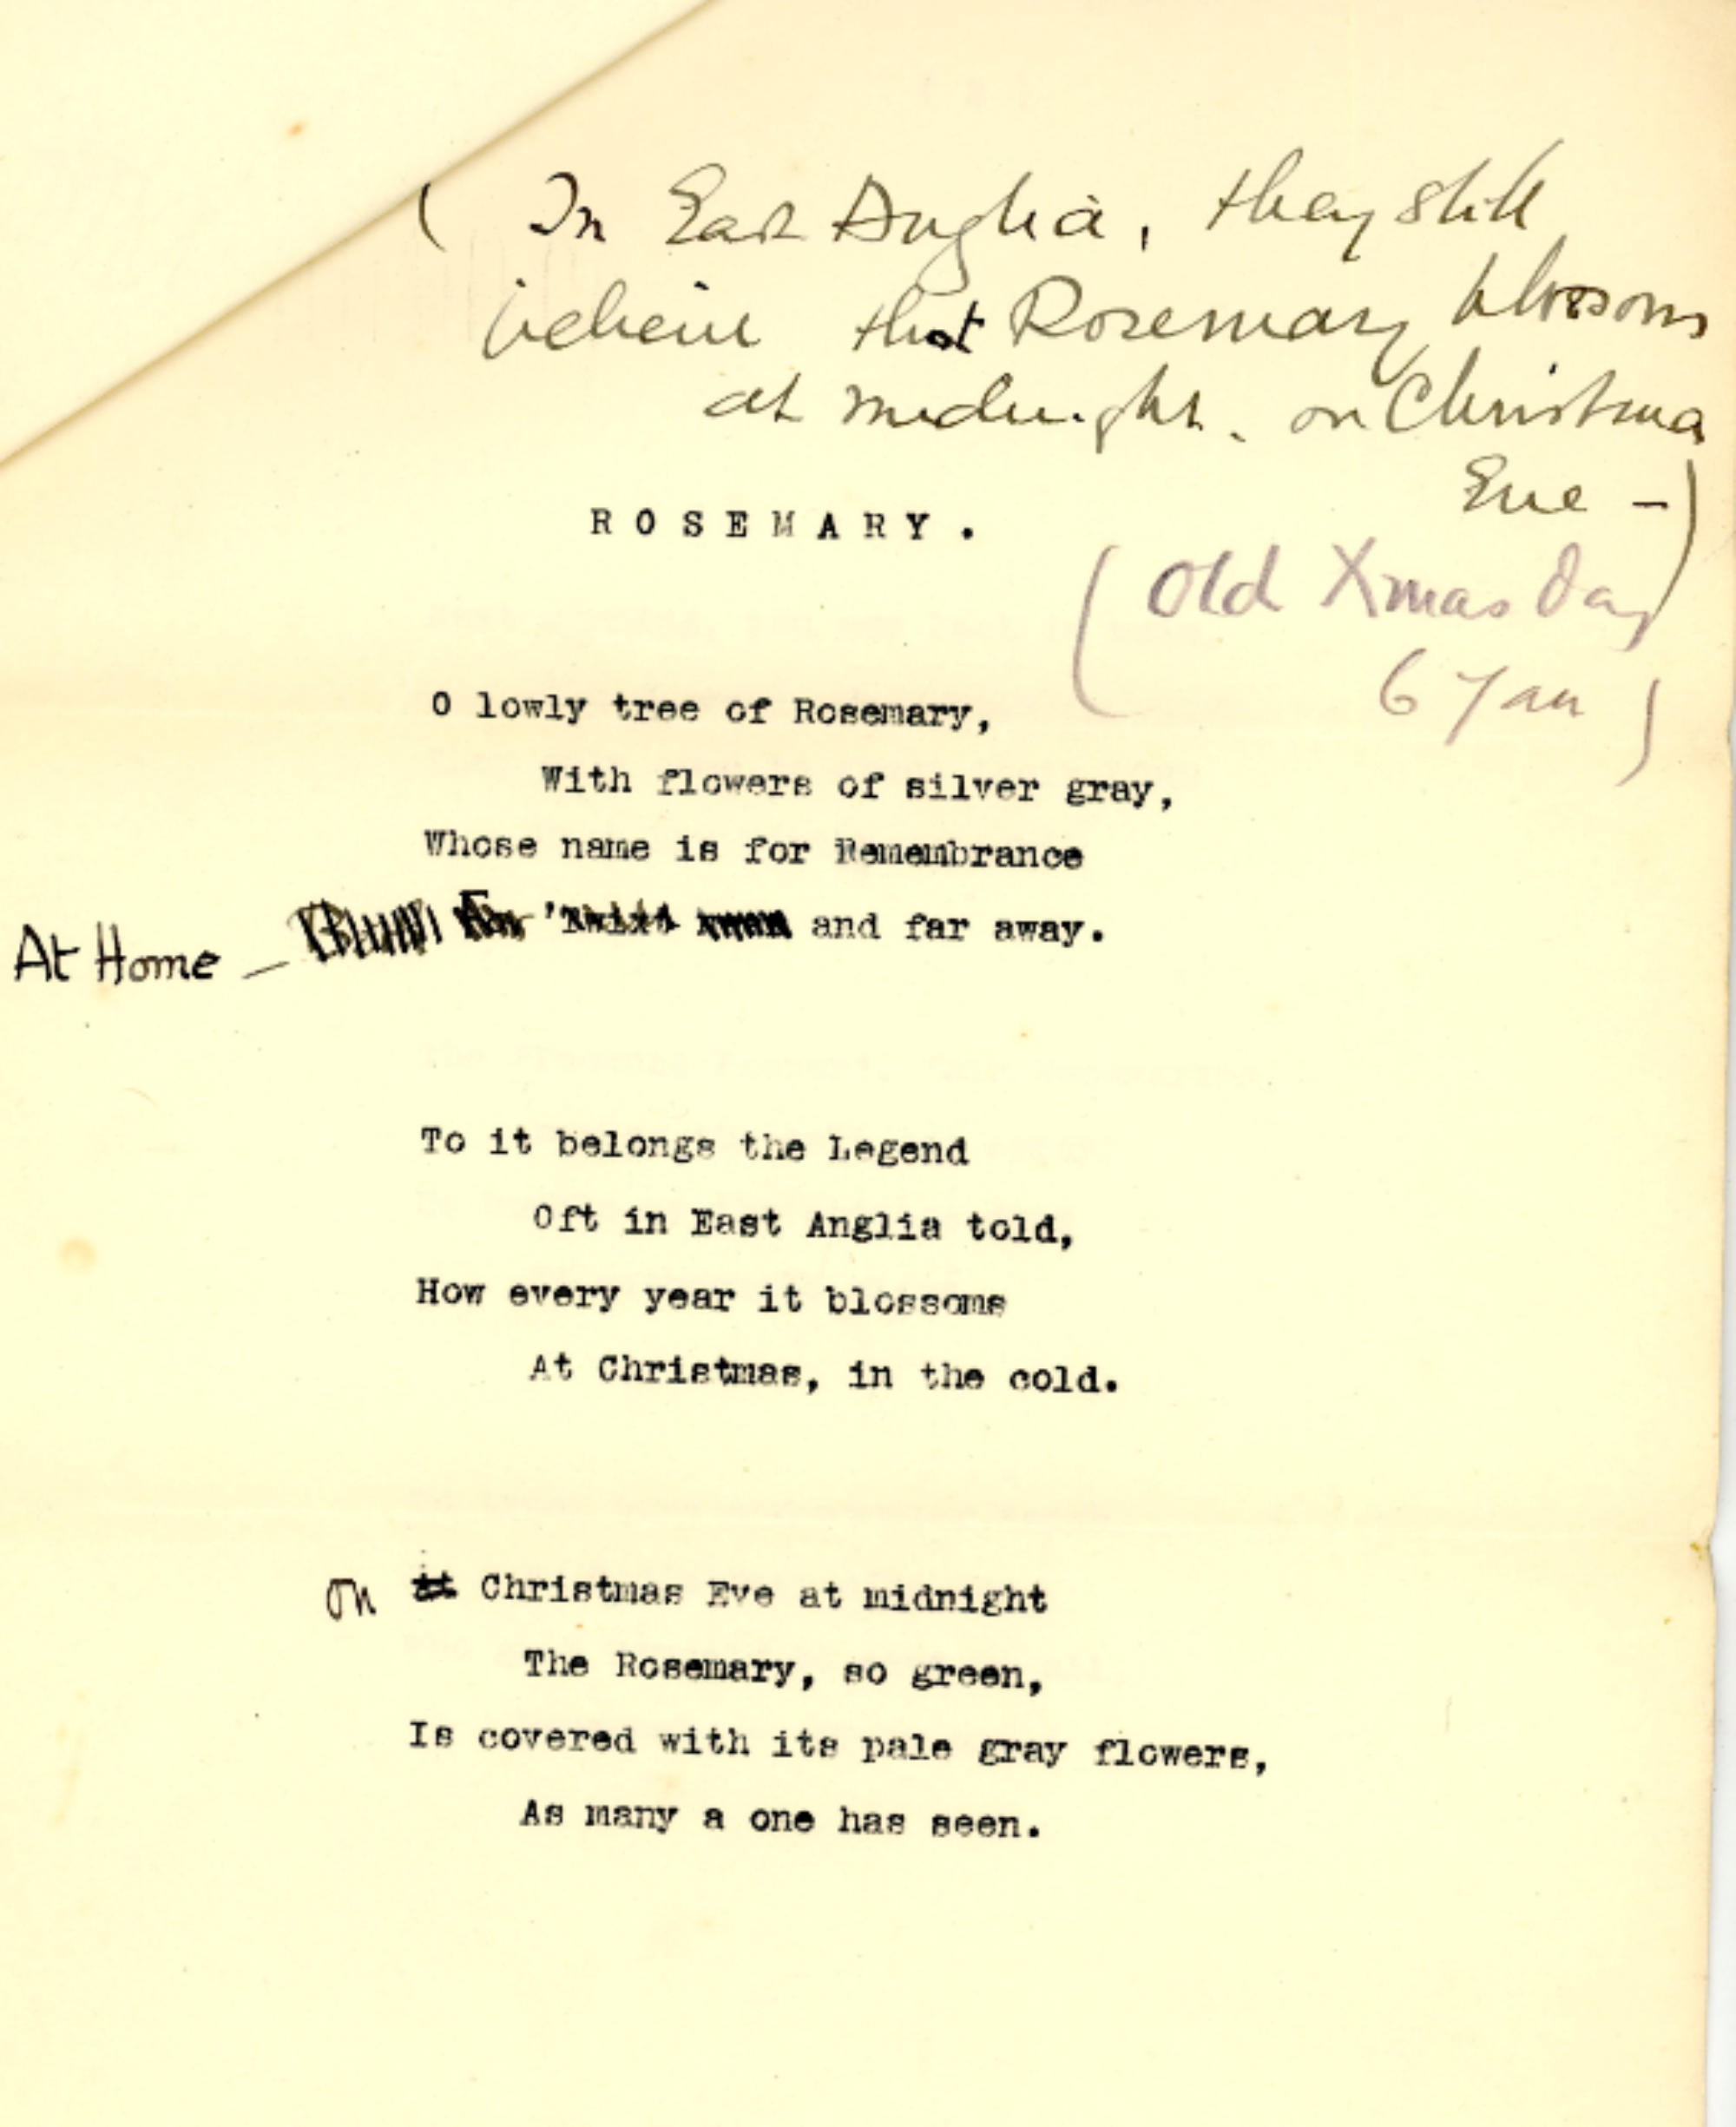 ( In East Anglia, they still
believe that Rosemary blossoms
at midnight. on Christmas
Eve -)
ROSEMARY.
(Old Xmas Day
6 Jan)
O lowly tree of Rosemary,
With flowers of silver gray,
Whose name is for Remembrance
At Home — and far away.
To it belongs the Legend
Oft in East Anglia told,
How every year it blossoms
At Christmas, in the cold.
On Christmas Eve at midnight
The Rosemary, so green,
Is covered with its pale gray flowers,
As many a one has seen.